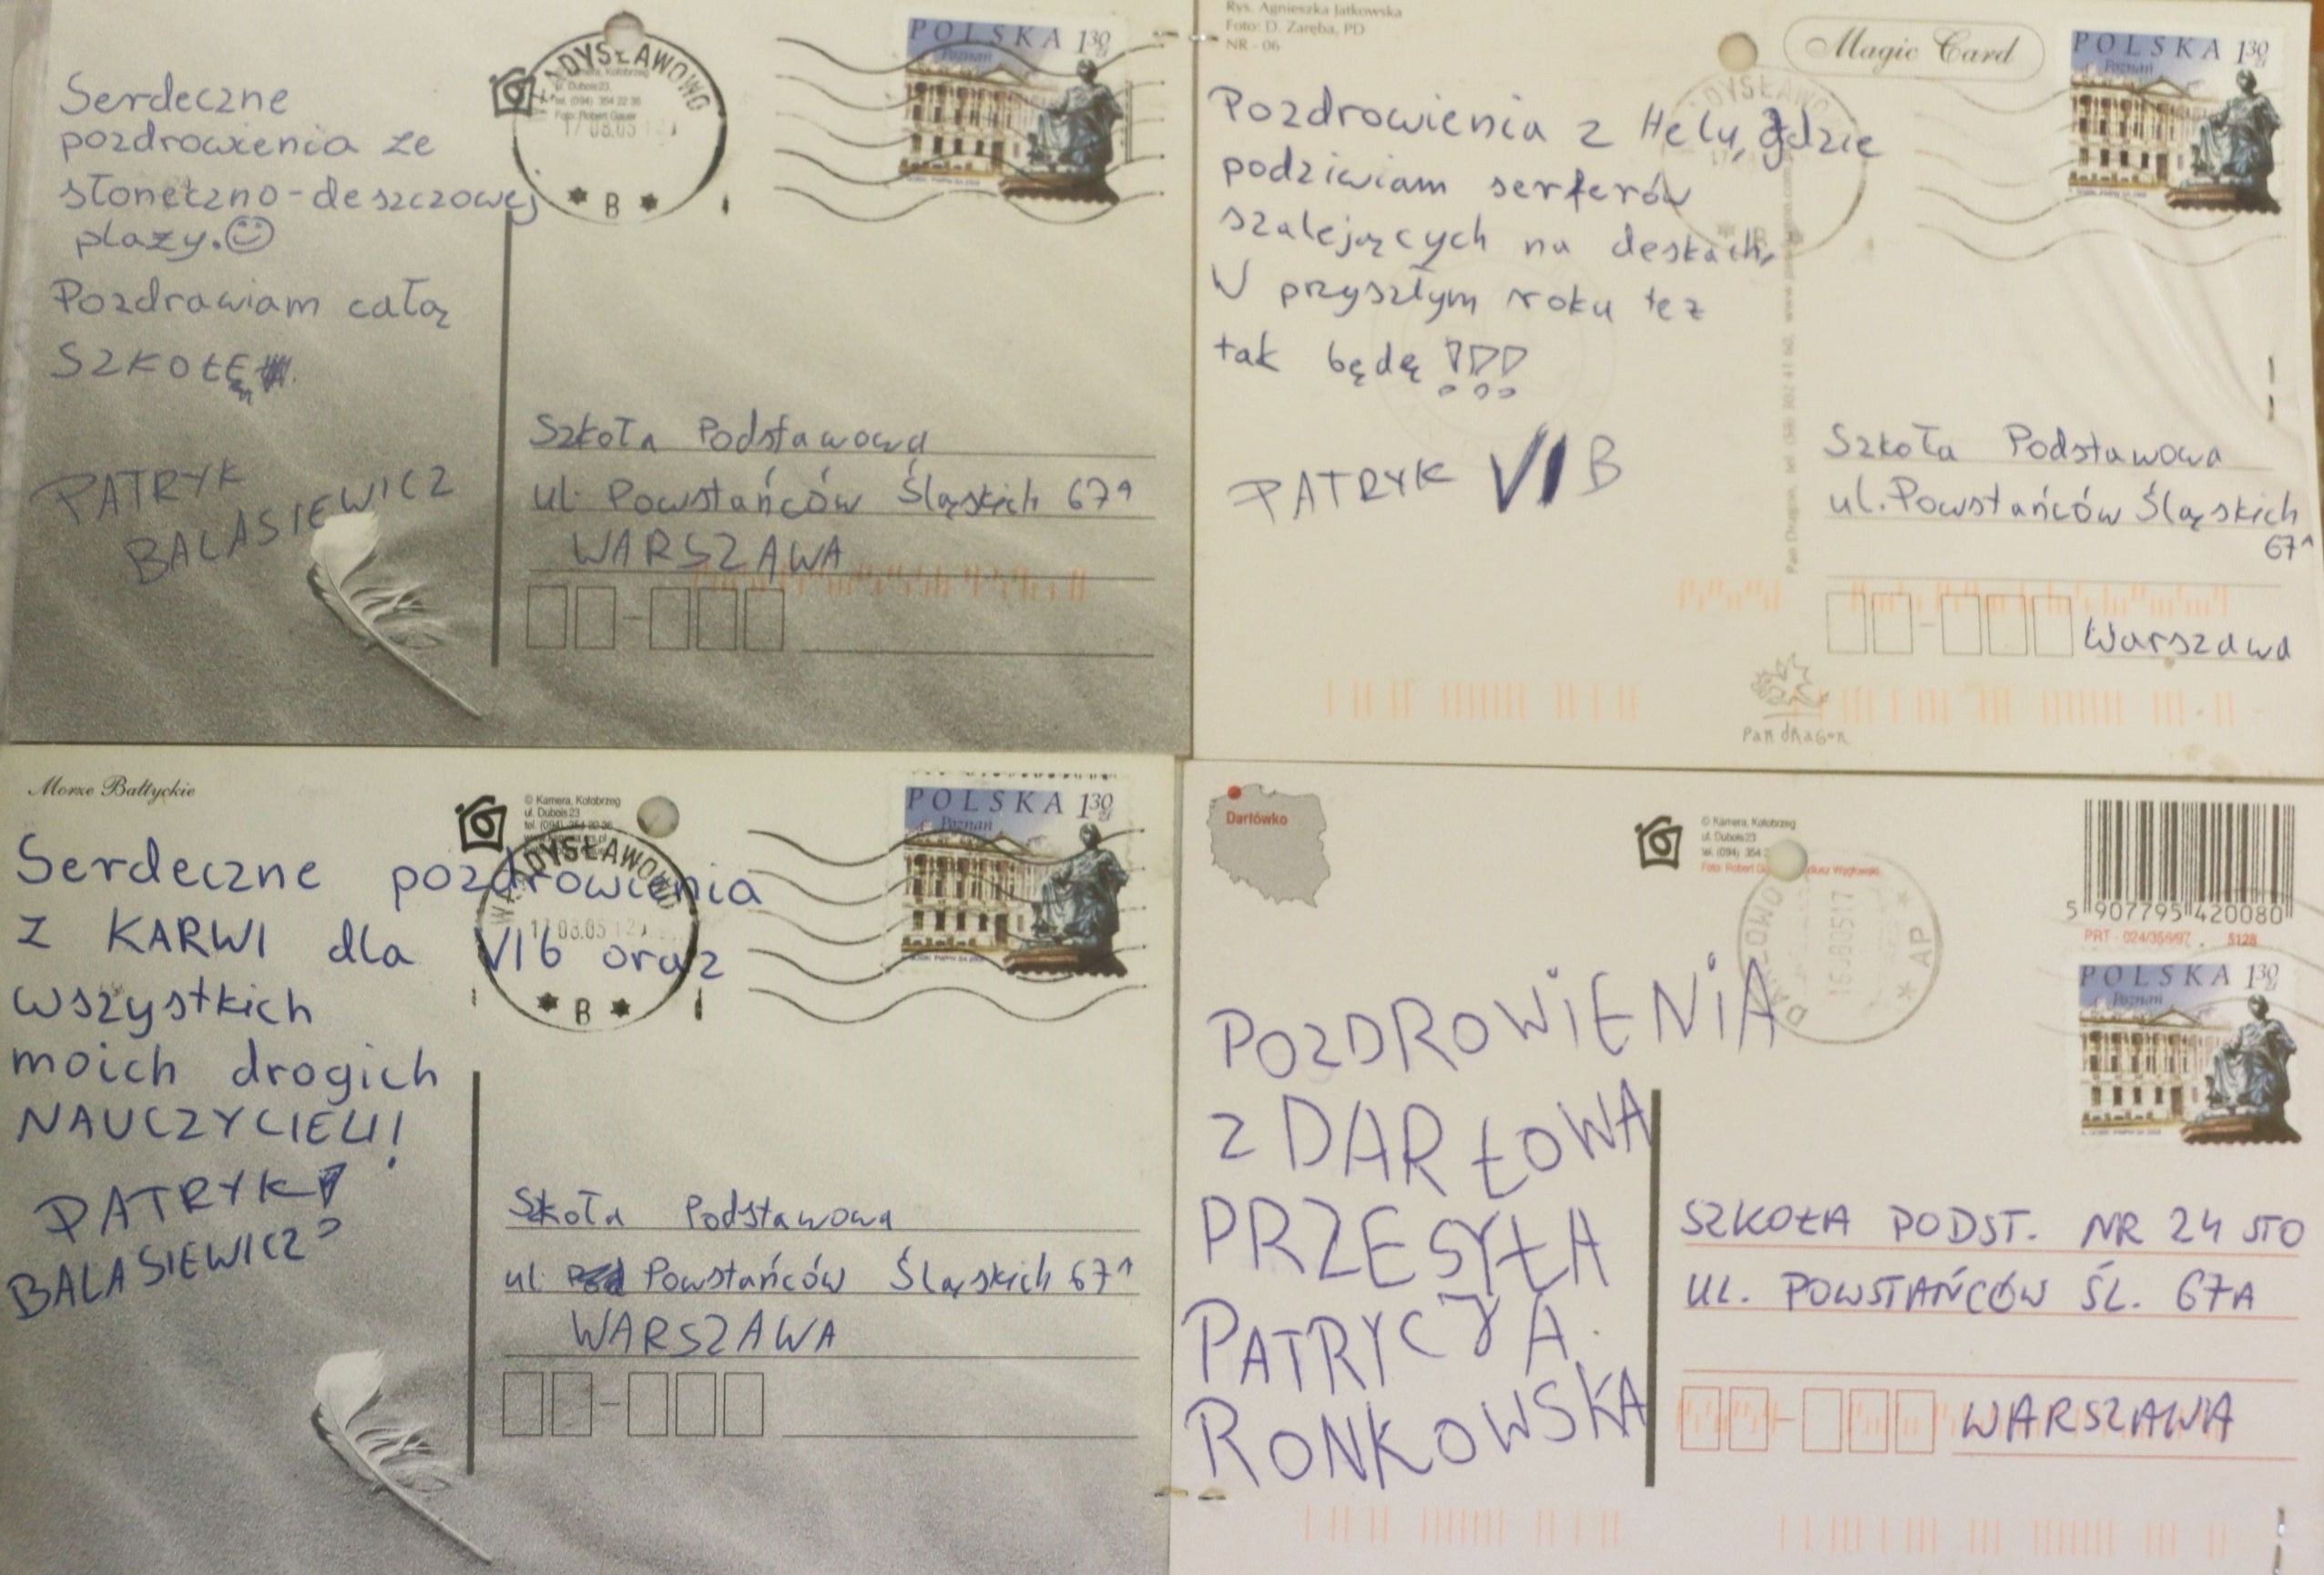 WŁADYSŁAWOWO
17 08.05 12
* B *
POLSKA 130 zł
Poznań
Serdeczne
pozdrowienia ze
słoneczno-deszczowej
plaży. ☺
Pozdrawiam całą
SZKOŁĘ
PATRYK
BALASIEWICZ
© Kamera, Kołobrzeg
ul. Dubois 23,
tel. (094) 354 22 36
Foto: Robert Gauer
Szkoła Podstawowa
ul. Powstańców Śląskich 67A
WARSZAWA
Rys. Agnieszka Jatkowska
Foto: D. Zaręba, PD
NR - 06
Magic Card
POLSKA 130 zł
Poznań
Pozdrowienia z Helu, gdzie
podziwiam serferów
szalejących na deskach,
W przyszłym roku też
tak będę !!!
PATRYK VI B
Szkoła Podstawowa
ul. Powstańców Śląskich
67A
Warszawa
Pan dRagon
Morze Bałtyckie
© Kamera, Kołobrzeg
ul. Dubois 23
tel. (094) 354 22 36
WŁADYSŁAWOWO
17 08.05 12
* B *
POLSKA 130 zł
Poznań
Serdeczne pozdrowienia
z KARWI dla VI b oraz
wszystkich
moich drogich
NAUCZYCIELI!
PATRYK
BALASIEWICZ
Szkoła Podstawowa
ul. Powstańców Śląskich 67A
WARSZAWA
Darłówko
© Kamera, Kołobrzeg
ul. Dubois 23
tel. (094) 354 2
5 907795 420080
PRT - 024/356/97 . 5128
DARŁOWO
16.08.05 17
* AP *
POLSKA 130 zł
Poznań
POZDROWIENIA
Z DARŁOWA
PRZESYŁA
PATRYCJA
RONKOWSKA
SZKOŁA PODST. NR 24 STO
UL. POWSTAŃCÓW ŚL. 67A
WARSZAWA